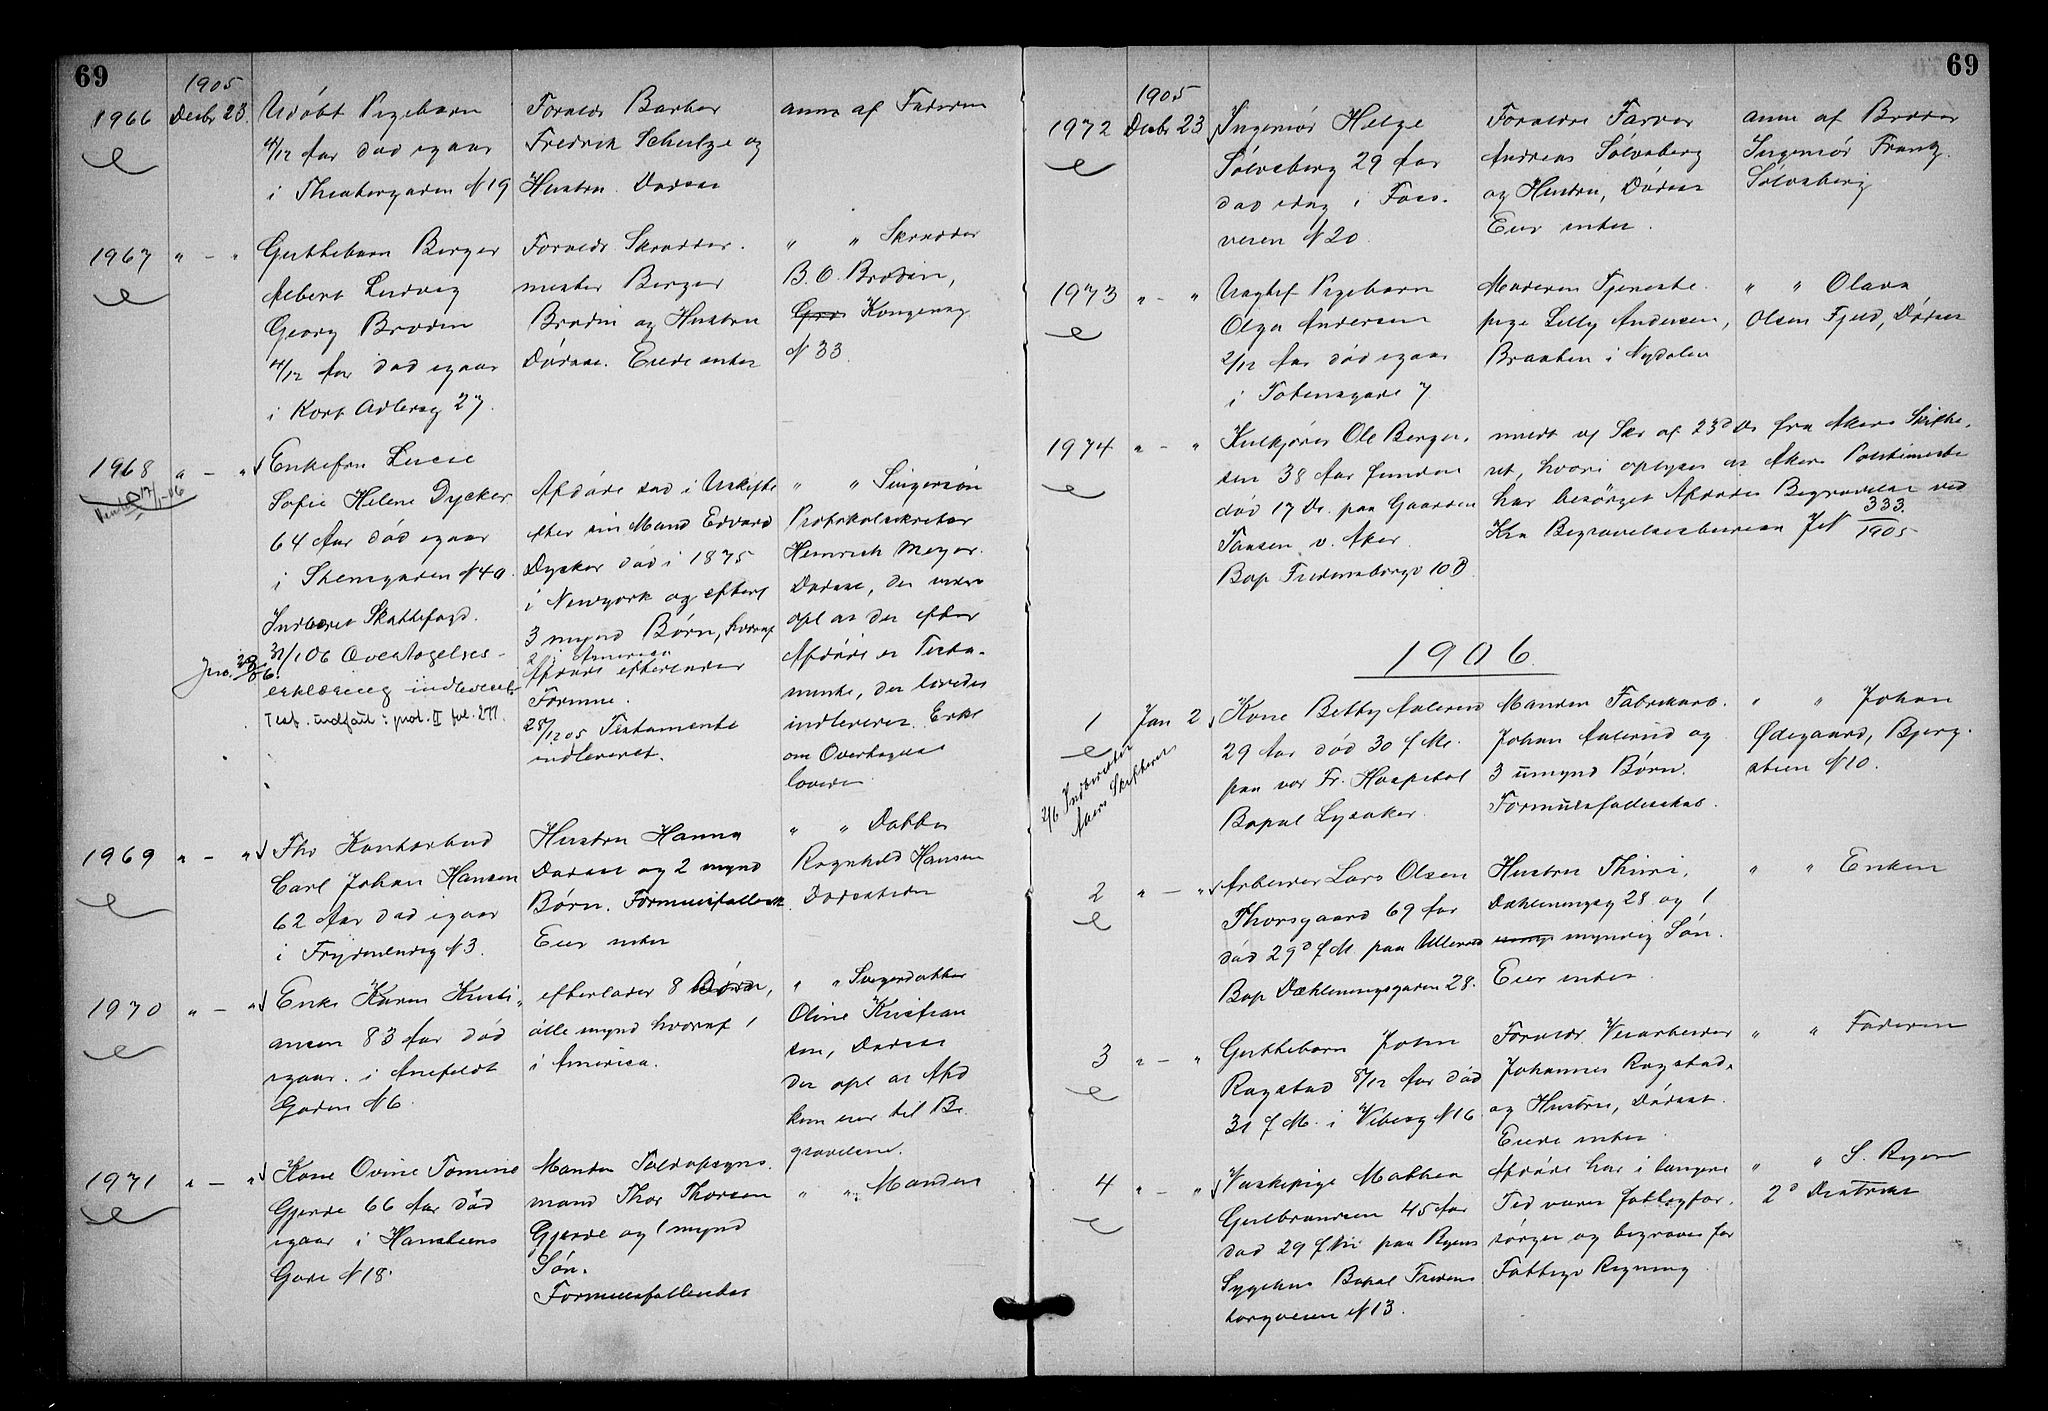 69
1905
1966 Decbr 23
Udöbt Pigebarn
4/12 Aar död igaar
i Theatergaden N 19
Foreldr Barber
Fredrik Schulze og
Hustru. Dødsa
anm af Faderen
1967 " - "
Guttebarn Berger
Albert Ludvig
Georg Brodin
4/12 Aar död igaar
i Kort Adlersg 27.
Foreldr Skrædder
mester Berger
Brodin og Hustru
Dödsa. Eiede intet
" " Skrædder
B. O. Brodin,
Kongensg
N 33.
1968 " - "
Enkefru Lucie
Sofie Helene Dycker
64 Aar död igaar
i Stensgaden N 40.
Indberet Skattefogd.
31/1 06 Overtagelses-
erklæring indleveret
Test. indført i prot. II fol. 277.
Afdöde sad i Uskifte
efter sin Mand Edvard
Dycker död i 1875
i Newyork og efterl
3 mynd Børn, hvoraf
2 i America
Afdöde efterlader
Formue.
28/12 05 Testamente
indleveret.
" " Svigersön
Protokolsekretær
Heinrich Meyer.
Dødsaa, der
opl at der efter
Afdöde er Testa-
mente, der loves
indleveres. Erkl
om Overtagelse
loves.
1969 " - "
Fhv Kontorbud
Carl Johan Hansen
62 Aar död igaar
i Frydenlundsg N 3.
Hustru Hanna
Dødsaa og 2 mynd
Børn. Formuesfællessk.
Eier intet
" " Datter
Ragnhild Hansen
Dødsstedet
1970 " - "
Enke Karen Kristi-
ansen 83 Aar död
igaar i Anefeldt
Gaden N 6.
efterlader 8 Børn,
alle mynd hvoraf 1
i America.
" " Svigerdatter
Oline Kristian
sen, Dødsaa
der opl at Afd
kun eier til Be-
gravelsen.
1971 " - "
Kone Ovine Tomine
Gjerde 66 Aar död
igaar i Hansteens
Gade N 18.
Manden Toldopsyns-
mand Thor Thorsen
Gjerde og 1 mynd
Søn.
Formuesfællesskab
" " Manden
69
1905
1972 Decbr 23
Ingeniör Helge
Sölvsberg 29 Aar
död idag i Foss-
veien N 20.
Foreldre Farver
Andreas Sölvsberg
og Hustru, Dödsaa
Eier intet.
anm af Broder
Ingeniör Frantz
Sölvsberg
1973 " - "
Uægtef Pigebarn
Olga Andersen
2/12 Aar död igaar
i Totensgade 7
Moderen Tjeneste-
pige Lilly Andersen,
Braaten i Nydalen
" " Olava
Olsen Fjeld, Dødsaa
1974 " - "
Kulkjörer Ole Berger-
sen 38 Aar funden
död 17 Ds. paa Gaarden
Taasen v. Aker.
Bop Fredensborgv 10 B
meldt v Skr af 23d Ds fra Akers Skifte-
ret, hvori oplyses at Akers Politimester
har besörget Afdödes Begravelse ved
Kra Begravelsesbureau JN 333/1905
1906.
1 Jan 2
2/6 Indberettet
Akers Skifteret
Kone Betty Aalerud
29 Aar död 30 f M.
paa vor Fr. Hospital
Bopæl Lysaker.
Manden Fabrikarb.
Johan Aalerud og
3 umynd Børn.
Formuesfællesskab.
" " Johan
Ødegaard, Bjerg-
stien N 10.
2 " - "
Arbeider Lars Olsen
Thorsgaard 69 Aar
död 29d f M. paa Ullevaal
Bop Dæhleningsgaden 28.
Hustru Thiri,
Dæhleningsg 28 og 1
myndig Søn.
Eier intet
" " Enken
3 " - "
Guttebarn John
Rogstad 8/12 Aar død
31 f M. i Vibesg N 16
Foreldr. Veiarbeider
Johannes Rogstad
og Hustru, Dödsaa.
Eiede intet.
" " Faderen
4 " - "
Vaskepige Mathea
Gulbrandsen 45 Aar
död 29 f M paa Byens
Sygehus Bopæl Fredens
borgveien N 13.
Afdöde har i længere
Tid været fattigfor-
sörget og begraves for
Fattigv Regning
" " S. Ryen
2d Distrikt